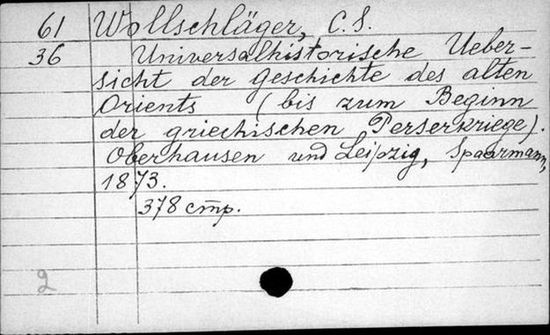 61 Wollschläger, C.S.
36 Universalhistorische Ueber-
sicht der Geschichte des alten
Orients (bis zum Beginn
der griechischen Perserkriege).
Oberhausen und Leipzig, Spaarmann,
1873.
378 стр.
2